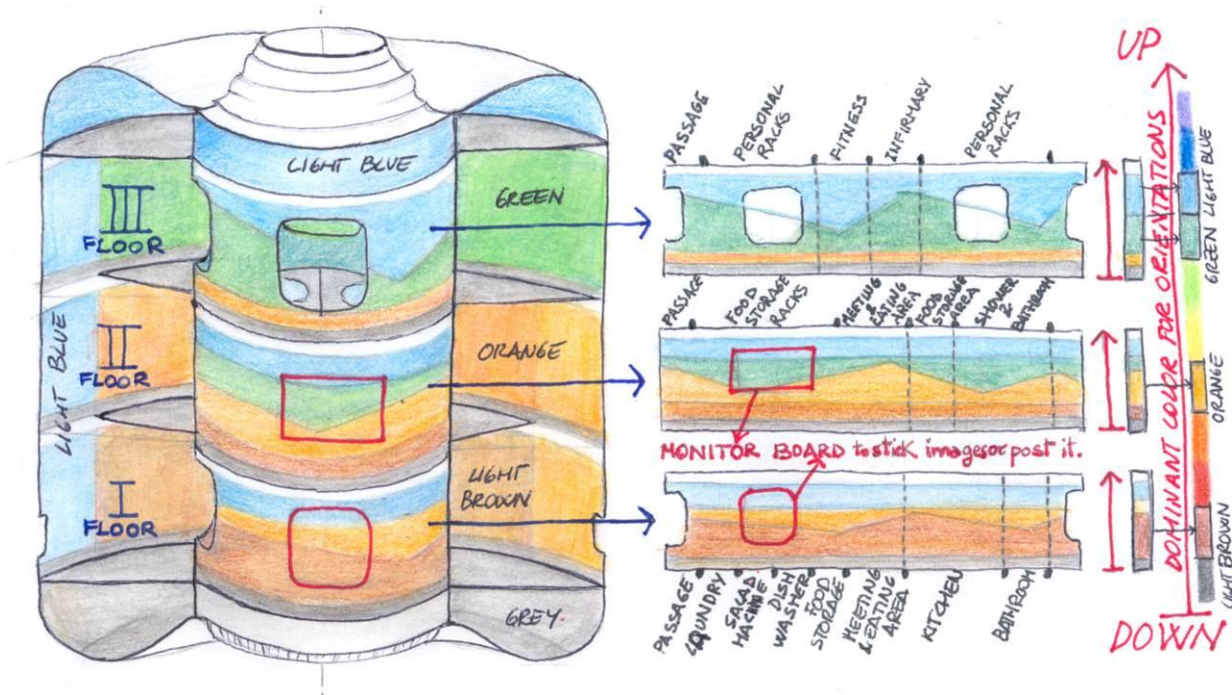 LIGHT BLUE
III
FLOOR
GREEN
LIGHT BLUE
II
FLOOR
ORANGE
I
FLOOR
LIGHT
BROWN
GREY.
PASSAGE
PERSONAL
RACKS
FITNESS
INFIRMARY
PERSONAL
RACKS
PASSAGE
FOOD
STORAGE
RACKS
MEETING
&
EATING
AREA
FOOD
STORAGE
AREA
SHOWER
&
BATHROOM
MONITOR BOARD to stick images or post it.
PASSAGE
LAUNDRY
SALAD
MACHINE
DISH
WASHER
FOOD
STORAGE
MEETING
& EATING
AREA
KITCHEN
BATHROOM
UP
DOMINANT COLOR FOR ORIENTATIONS
DOWN
GREEN LIGHT BLUE
ORANGE
LIGHT BROWN